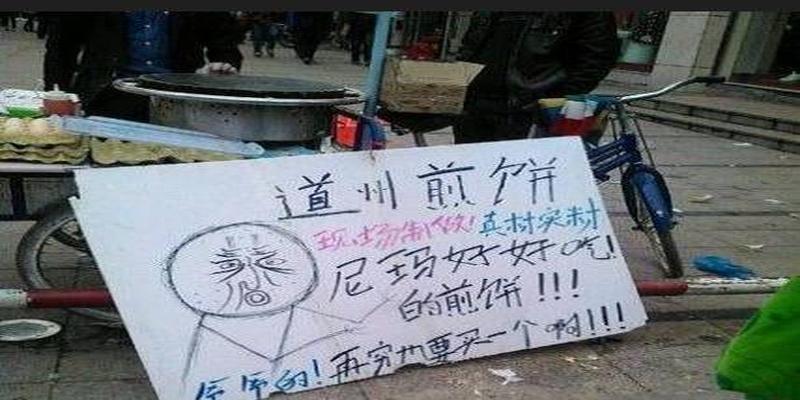 道州煎饼
现场制做！真材实料
尼玛好好吃！
的煎饼！！！
的！再穷也要买一个啊！！！